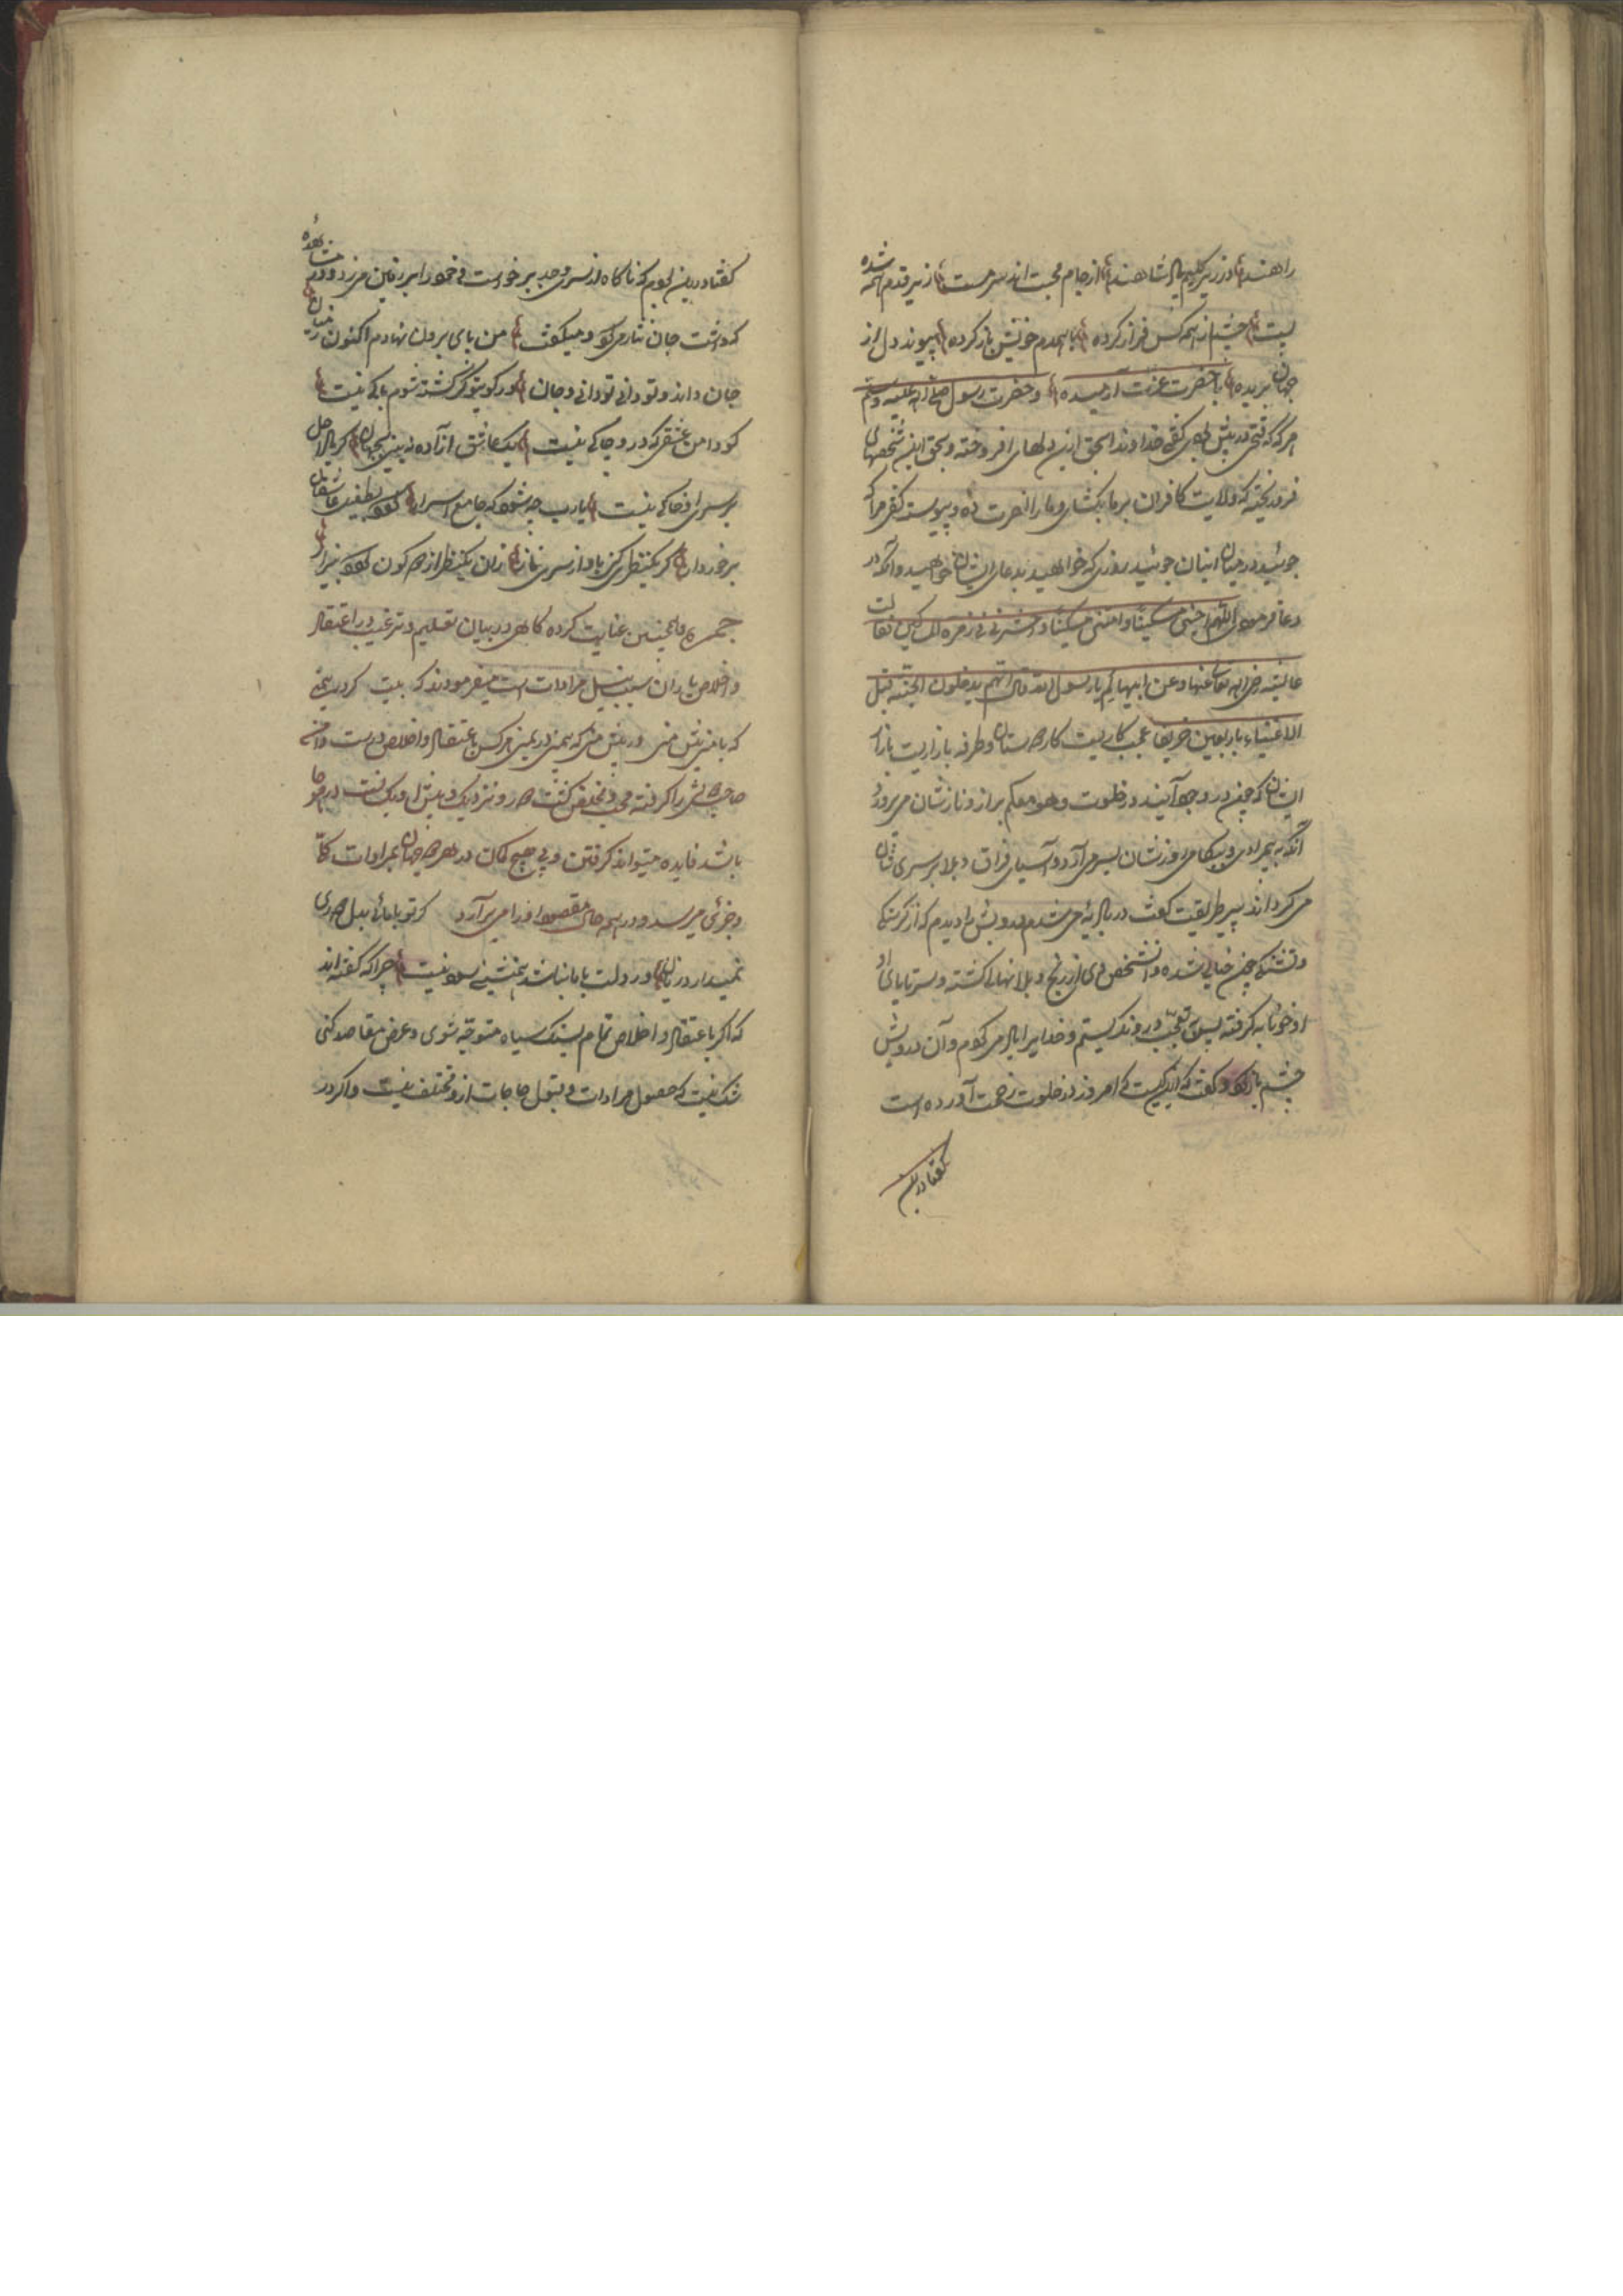 راهند در زیر کلیم پادشاهند از جام محبت اند سرمست از زیر قدم همه شده
پست چشم از همه کس فراز کرده با همدم خویش باز کرده پیوند دل از
جهان بریده با حضرت عزت آرمیده و حضرت رسول صلی الله علیه وسلم
هرگه که فتحی در پیش بودی گفتی خداوندا بحق این دلهای افروخته و بحق این شخصهای
فرو ریخته که ولایت کافران بر ما بکشای و ما را نصرت ده و پیوسته گفتی مرا که
جوئید در میان اینان جوئید روزی که خواهید بدعای ایشان خواهید و آنکه در
دعا فرمود اللهم احینی مسکینا وامتنی مسکینا واحشرنی فی زمرة المساکین فقالت
عائشه رضی الله تعالی عنها وعن ابیها لم یا رسول الله قال انهم یدخلون الجنة قبل
الاغنیاء باربعین خریفا عجب کاریست کار دوستان و طرفه بازاریست بازار
ایشان که چون در وجود آیند در خلوت وهو معکم براز و نازشان می پرورد
آنکه به بیمرادی و بیکامی روزشان بسر می آرد و آسیای فراق و بلا بر سر ایشان
می گرداند پیر طریقت گفت در بادیه می شدم درویشی را دیدم که از گرسنگی
و تشنگی چون خیالی شده و آن شخص وی از رنج و بلا نهالی گشته و سر تا پای او
خونابه گرفته پس به تعجب درو نگریستم و خدایرا یاد می کردم و آن درویش
چشم باز کرد و گفت که این کیست که امروز در خلوت زحمت آورده است
گفتا درین
گفتا درین بودم که ناگاه از سر وجد برخاست و خود را بر زمین می زد و در مشاهده
گذاشت جان نثار می کرد و میگفت من پای برون نهادم اکنون زمیان
جان داند و تو دانی تو دانی و جان در کوی تو گر کشته شوم باکی نیست
کو دامن عشقی که درو چاکی نیست یک عاشق آزاده نبینی بجهان کز باد اجل
بر سر او خاکی نیست یارب چه شود که جامع اسرار بود بطفیل عاشقان
برخوردار گر یکنظری کنی باو از سر ناز زان یکنظر از دو کون گردد بیزار
واخلاص یاران سبب نیل مرادات است میفرمودند که بیت گر در یمنی
که با منی پیش منی ور پیش منی که بی منی در یمنی هر کس باعتقاد و اخلاص درست دامن
باشد فایده میتواند گرفتن و بی هیچ گمان در هر دو جهان بمرادات کلی
و جزئی میرسد و در همه حال مقصود او خدا می برآرد گر تو با مائی بدل دوری
نمیدارد زیان ور دلت با ما نباشد همنشینی سود نیست چرا که گفته اند
که اگر باعتقاد و اخلاص تمام بسنگ سیاه متوجه شوی و عرض مقاصد کنی
شک نیست که حصول مرادات و قبول حاجات ازو مختلف نیست و اگر در